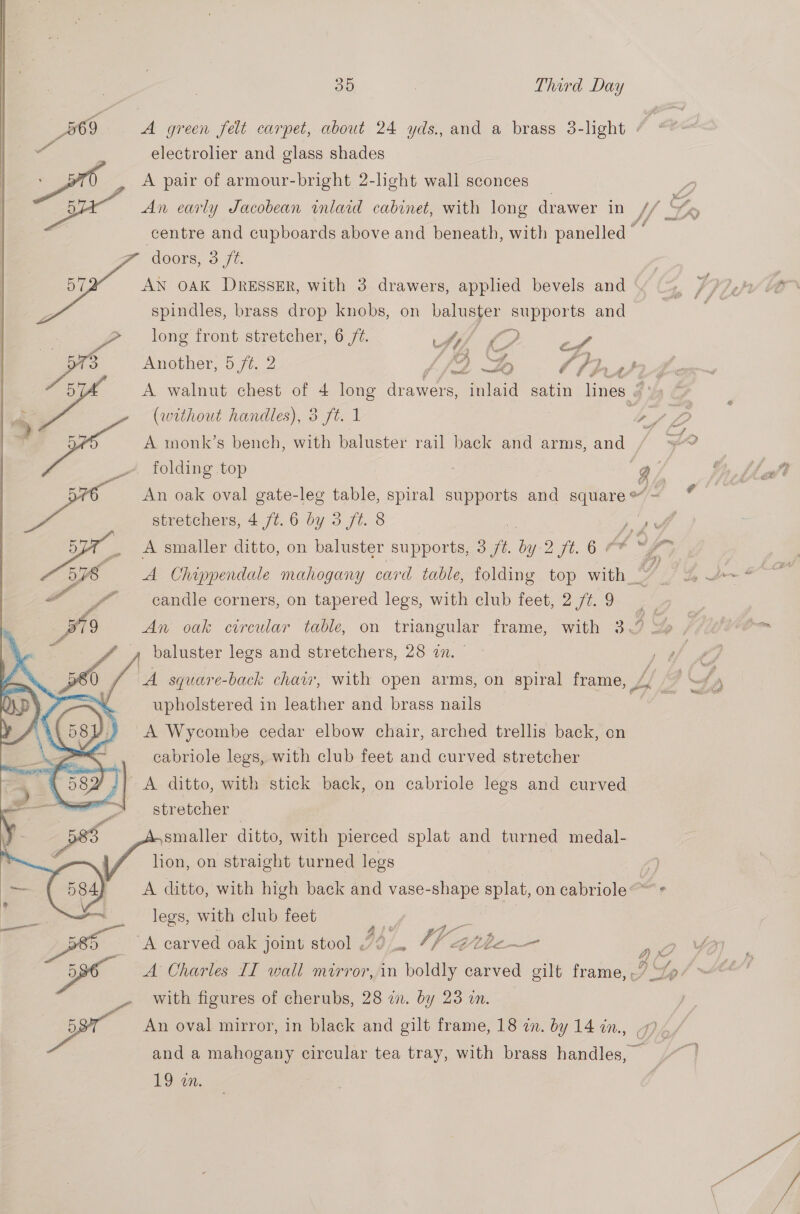 35 Third Day
569 A green felt carpet, about 24 yds., and a brass 3-light
electrolier and glass shades
570 A pair of armour-bright 2-light wall sconces
571 An early Jacobean inlaid cabinet, with long drawer in
centre and cupboards above and beneath, with panelled
doors, 3 ft.
572 AN OAK DRESSER, with 3 drawers, applied bevels and
spindles, brass drop knobs, on baluster supports and
long front stretcher, 6 ft.
573 Another, 5 ft. 2
574 A walnut chest of 4 long drawers, inlaid satin lines
(without handles), 3 ft. 1
575 A monk's bench, with baluster rail back and arms, and
folding top
576 An oak oval gate-leg table, spiral supports and square
stretchers, 4 ft. 6 by 3 ft. 8
577 A smaller ditto, on baluster supports, 3 ft. by 2 ft. 6
578 A Chippendale mahogany card table, folding top with
candle corners, on tapered legs, with club feet, 2 ft. 9
579 An oak circular table, on triangular frame, with 3
baluster legs and stretchers, 28 in.
580 A square-back chair, with open arms, on spiral frame,
upholstered in leather and brass nails
581 A Wycombe cedar elbow chair, arched trellis back, on
cabriole legs, with club feet and curved stretcher
582 A ditto, with stick back, on cabriole legs and curved
stretcher
583 A smaller ditto, with pierced splat and turned medal-
lion, on straight turned legs
584 A ditto, with high back and vase-shape splat, on cabriole
legs, with club feet
585 A carved oak joint stool
586 A Charles II wall mirror, in boldly carved gilt frame,
with figures of cherubs, 28 in. by 23 in.
587 An oval mirror, in black and gilt frame, 18 in. by 14 in.,
and a mahogany circular tea tray, with brass handles,
19 in.